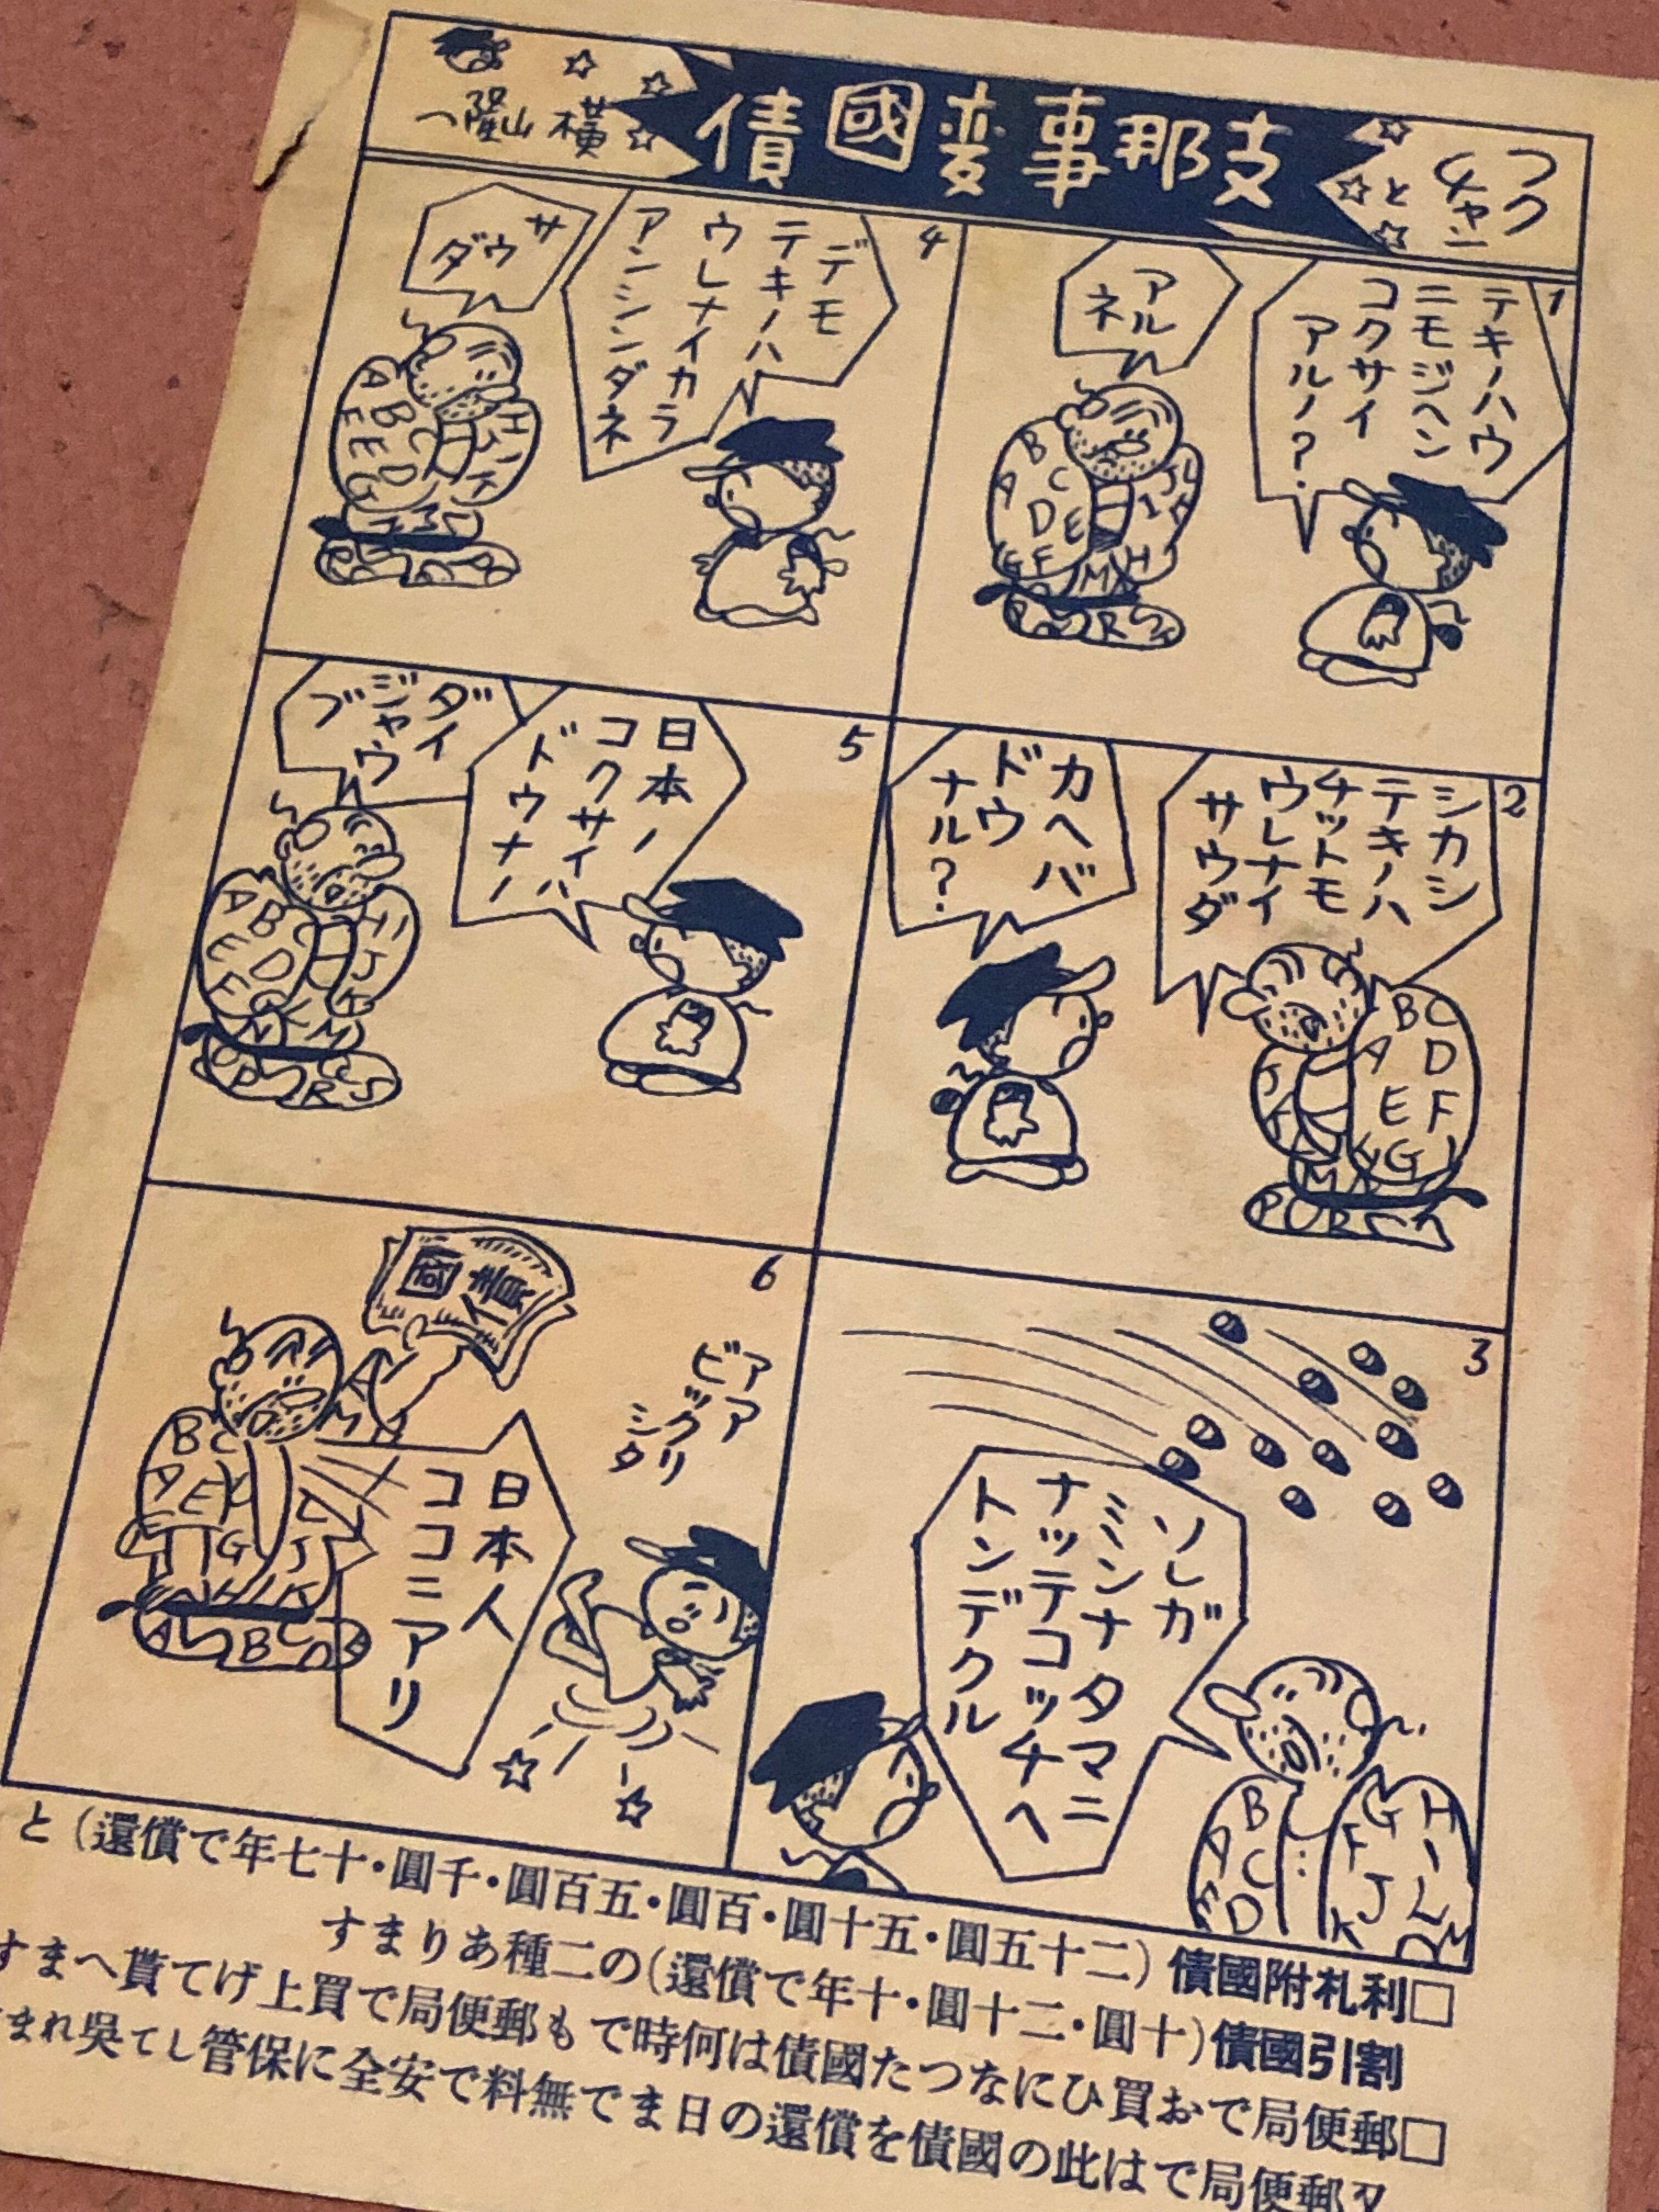 フク
チャン
と
支那事変國債
横山隆一
1
テキノハウ
ニモジヘン
コクサイ
アルノ?
アル
ネ
2
シカシ
テキノハ
チットモ
ウレナイ
サウダ
カヘバ
ドウ
ナル?
3
ソレガ
ミンナタマニ
ナッテコッチヘ
トンデクル
4
デモ
テキノハ
ウレナイカラ
アンシンダネ
サウ
ダ
5
日本ノ
コクサイハ
ドウナノ
ダイ
ジャウ
ブ
6
國債
日本人
ココニアリ
アア
ビックリ
シタ
□利札附國債(二十五圓・五十圓・百圓・五百圓・千圓・十七年で償還)と
割引國債(十圓・二十圓・十年で償還)の二種あります
□郵便局でお買ひになつた國債は何時でも郵便局で買上げて貰へます
又郵便局では此の國債を償還の日まで無料で安全に保管して呉れま